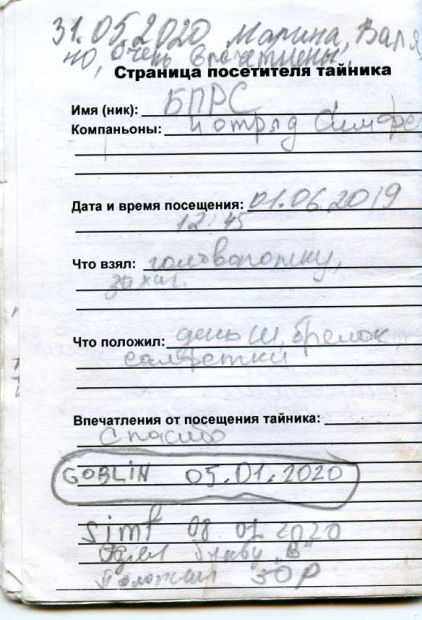 31.05.2020 Марина, Валя
но, очень впечатлены,
Страница посетителя тайника
Имя (ник): БПРС
Компаньоны: и отряд Симфе
Дата и время посещения: 01.06.2019
12:45
Что взял: головоломку,
Что положил: деньги, брелок,
салфетки
Впечатления от посещения тайника:
Спасибо
GOBLIN 05.01.2020
Simf 08 01 2020
букву "В"
Положил 30р